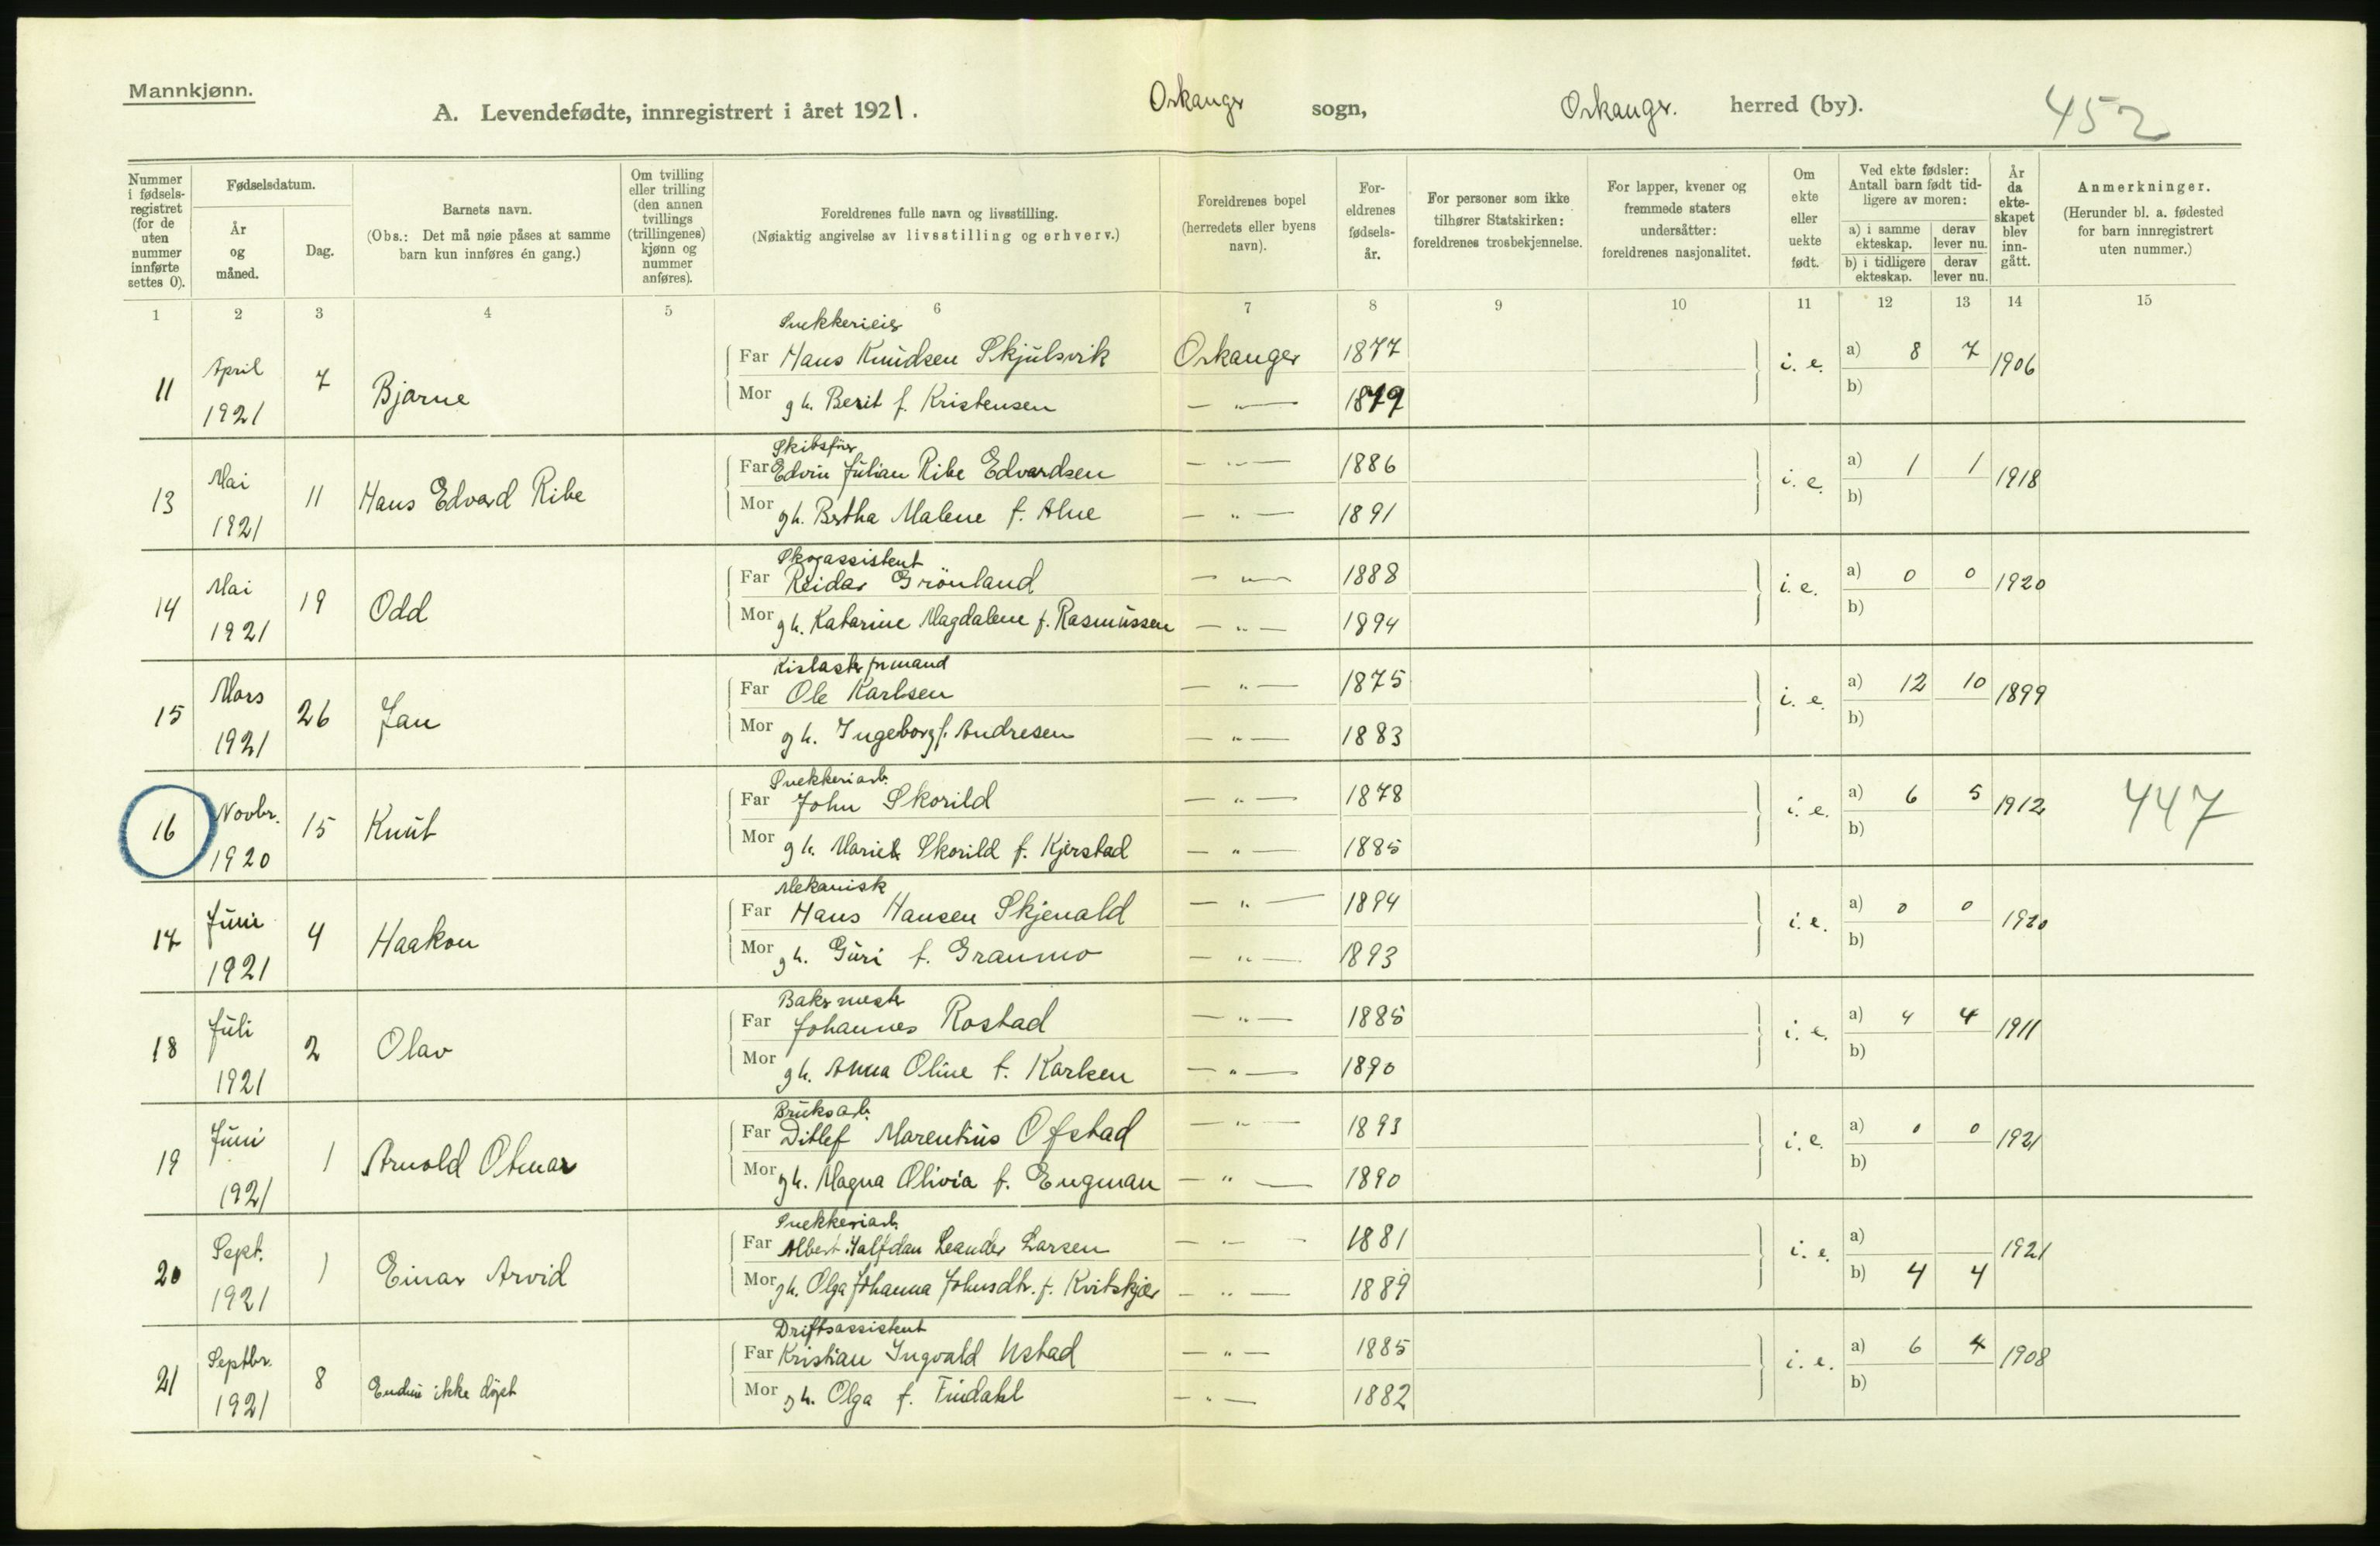 Mannkjønn.
A. Levendefødte, innregistrert i året 1921. Orkanger sogn, Orkanger. herred (by). 452
Nummer i fødsels-registret (for de uten nummer innførte settes 0).
Fødselsdatum.
År og måned.
Dag.
Barnets navn.
(Obs.: Det må nøie påses at samme barn kun innføres én gang.)
Om tvilling eller trilling (den annen tvillings (trillingenes) kjønn og nummer anføres).
Foreldrenes fulle navn og livsstilling.
(Nøiaktig angivelse av livsstilling og erhverv.)
Foreldrenes bopel (herredets eller byens navn).
For-eldrenes fødsels-år.
For personer som ikke tilhører Statskirken: foreldrenes trosbekjennelse.
For lapper, kvener og fremmede staters undersåtter: foreldrenes nasjonalitet.
Om ekte eller uekte født.
Ved ekte fødsler: Antall barn født tid-ligere av moren:
a) i samme ekteskap. derav lever nu.
b) i tidligere ekteskap. derav lever nu.
År da ekte-skapet blev inn-gått.
Anmerkninger.
(Herunder bl. a. fødested for barn innregistrert uten nummer.)
1 2 3 4 5 6 7 8 9 10 11 12 13 14 15
Snekkerieier
11 April 1921 7 Bjarne Far Hans Knudsen Skjulsvik Orkanger 1877 i. e. a) 8 7 1906
Mor gh. Berit f. Kristensen — " — 1879 b)
Skibsfører
13 Mai 1921 11 Hans Edvard Ribe Far Edvin Julian Ribe Edvardsen — " — 1886 i. e. a) 1 1 1918
Mor gh. Bertha Malene f. Alne — " — 1891 b)
Skogassistent
14 Mai 1921 19 Odd Far Reidar Grönland — " — 1888 i. e. a) 0 0 1920
Mor gh. Katarine Magdalene f. Rasmussen — " — 1894 b)
15 Mars 1921 26 Jan Far Ole Karlsen — " — 1875 i. e. a) 12 10 1899
Mor gh. Ingeborg f. Andresen — " — 1883 b)
Snekkeriarb.
16 Novbr. 1920 15 Knut Far John Skorild — " — 1878 i. e. a) 6 5 1912 447
Mor gh. Marie Skorild f. Kjerstad — " — 1885 b)
Mekanisk
17 Juni 1921 4 Haakon Far Hans Hansen Skjenald — " — 1894 i. e. a) 0 0 1920
Mor gh. Guri f. Granmo — " — 1893 b)
Bakermester
18 Juli 1921 2 Olav Far Johannes Rostad — " — 1885 i. e. a) 4 4 1911
Mor gh. Anna Oline f. Karlsen — " — 1890 b)
Bruksarb.
19 Juni 1921 1 Arnold Otmar Far Ditlef Marentius Ofstad — " — 1893 i. e. a) 0 0 1921
Mor gh. Magna Olivia f. Engman — " — 1890 b)
Snekkeriarb.
20 Sept. 1921 1 Einar Arvid Far Albert Halfdan Leander Larsen — " — 1881 i. e. a) 1921
Mor gh. Olga Johanna Johnsdtr. f. Kvitskjær — " — 1889 b) 4 4
Driftsassistent
21 Septbr. 1921 8 Endnu ikke döpt Far Kristian Ingvald Ustad — " — 1885 i. e. a) 6 4 1908
Mor gh. Olga f. Findahl — " — 1882 b)